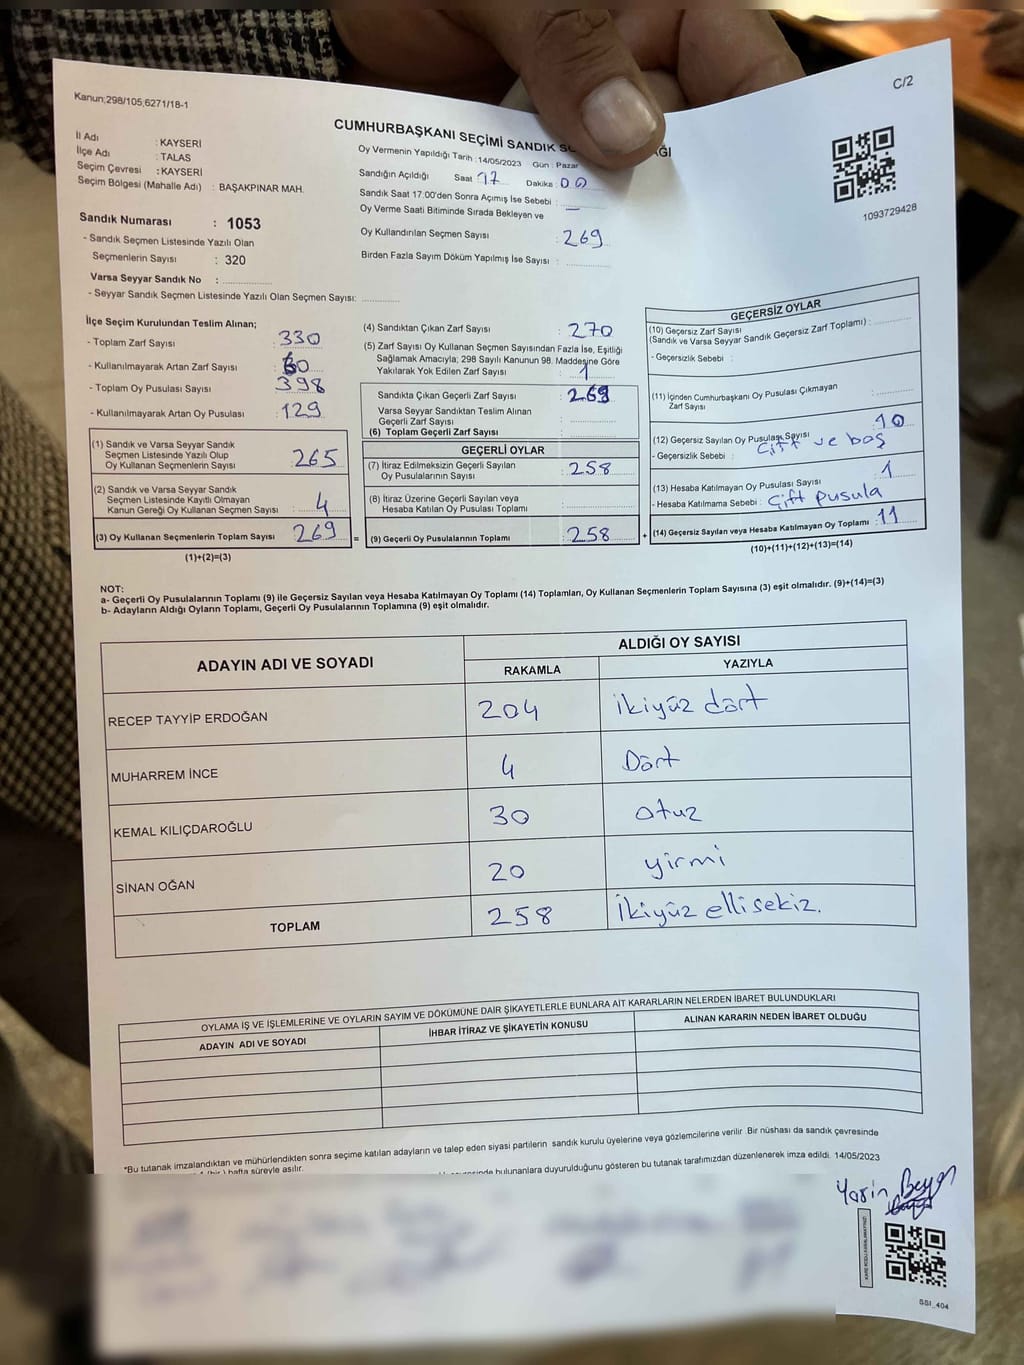 C/2
Kanun;298/105,6271/18-1
CUMHURBAŞKANI SEÇİMİ SANDIK
İl Adı : KAYSERİ
İlçe Adı : TALAS
Seçim Çevresi : KAYSERİ
Seçim Bölgesi (Mahalle Adı) : BAŞAKPINAR MAH.
Oy Vermenin Yapıldığı Tarih : 14/05/2023 Gün : Pazar
Sandığın Açıldığı Saat 17 Dakika : 00
Sandık Saat 17:00'den Sonra Açımış İse Sebebi : —
Oy Verme Saati Bitiminde Sırada Bekleyen ve
Oy Kullandırılan Seçmen Sayısı : 269
Birden Fazla Sayım Döküm Yapılmış İse Sayısı :
1093729428
Sandık Numarası : 1053
- Sandık Seçmen Listesinde Yazılı Olan
Seçmenlerin Sayısı : 320
Varsa Seyyar Sandık No :
- Seyyar Sandık Seçmen Listesinde Yazılı Olan Seçmen Sayısı:
İlçe Seçim Kurulundan Teslim Alınan;
- Toplam Zarf Sayısı : 330
- Kullanılmayarak Artan Zarf Sayısı : 60
- Toplam Oy Pusulası Sayısı : 398
- Kullanılmayarak Artan Oy Pusulası : 129
(1) Sandık ve Varsa Seyyar Sandık
Seçmen Listesinde Yazılı Olup
Oy Kullanan Seçmenlerin Sayısı : 265
(2) Sandık ve Varsa Seyyar Sandık
Seçmen Listesinde Kayıtlı Olmayan
Kanun Gereği Oy Kullanan Seçmen Sayısı : 4
(3) Oy Kullanan Seçmenlerin Toplam Sayısı : 269
(1)+(2)=(3)
(4) Sandıktan Çıkan Zarf Sayısı : 270
(5) Zarf Sayısı Oy Kullanan Seçmen Sayısından Fazla İse, Eşitliği
Sağlamak Amacıyla; 298 Sayılı Kanunun 98. Maddesine Göre
Yakılarak Yok Edilen Zarf Sayısı : 1
Sandıkta Çıkan Geçerli Zarf Sayısı : 269
Varsa Seyyar Sandıktan Teslim Alınan
Geçerli Zarf Sayısı :
(6) Toplam Geçerli Zarf Sayısı :
GEÇERLİ OYLAR
(7) İtiraz Edilmeksizin Geçerli Sayılan
Oy Pusulalarının Sayısı : 258
(8) İtiraz Üzerine Geçerli Sayılan veya
Hesaba Katılan Oy Pusulası Toplamı :
= (9) Geçerli Oy Pusulalarının Toplamı : 258
GEÇERSİZ OYLAR
(10) Geçersiz Zarf Sayısı
(Sandık ve Varsa Seyyar Sandık Geçersiz Zarf Toplamı) :
- Geçersizlik Sebebi :
(11) İçinden Cumhurbaşkanı Oy Pusulası Çıkmayan
Zarf Sayısı :
(12) Geçersiz Sayılan Oy Pusulası Sayısı : 10
- Geçersizlik Sebebi : Çift ve boş
(13) Hesaba Katılmayan Oy Pusulası Sayısı : 1
- Hesaba Katılmama Sebebi : Çift pusula
+ (14) Geçersiz Sayılan veya Hesaba Katılmayan Oy Toplamı : 11
(10)+(11)+(12)+(13)=(14)
NOT:
a- Geçerli Oy Pusulalarının Toplamı (9) ile Geçersiz Sayılan veya Hesaba Katılmayan Oy Toplamı (14) Toplamları, Oy Kullanan Seçmenlerin Toplam Sayısına (3) eşit olmalıdır. (9)+(14)=(3)
b- Adayların Aldığı Oyların Toplamı, Geçerli Oy Pusulalarının Toplamına (9) eşit olmalıdır.
ADAYIN ADI VE SOYADI ALDIĞI OY SAYISI
RAKAMLA YAZIYLA
RECEP TAYYİP ERDOĞAN 204 ikiyüz dört
MUHARREM İNCE 4 Dört
KEMAL KILIÇDAROĞLU 30 otuz
SİNAN OĞAN 20 yirmi
TOPLAM 258 İkiyüz ellisekiz.
OYLAMA İŞ VE İŞLEMLERİNE VE OYLARIN SAYIM VE DÖKÜMÜNE DAİR ŞİKAYETLERLE BUNLARA AİT KARARLARIN NELERDEN İBARET BULUNDUKLARI
ADAYIN ADI VE SOYADI İHBAR İTİRAZ VE ŞİKAYETİN KONUSU ALINAN KARARIN NEDEN İBARET OLDUĞU
*Bu tutanak imzalandıktan ve mühürlendikten sonra seçime katılan adayların ve talep eden siyasi partilerin sandık kurulu üyelerine veya gözlemcilerine verilir. Bir nüshası da sandık çevresinde
(bir) hafta süreyle asılır.
bulunanlara duyurulduğunu gösteren bu tutanak tarafımızdan düzenlenerek imza edildi. 14/05/2023
SSI_404